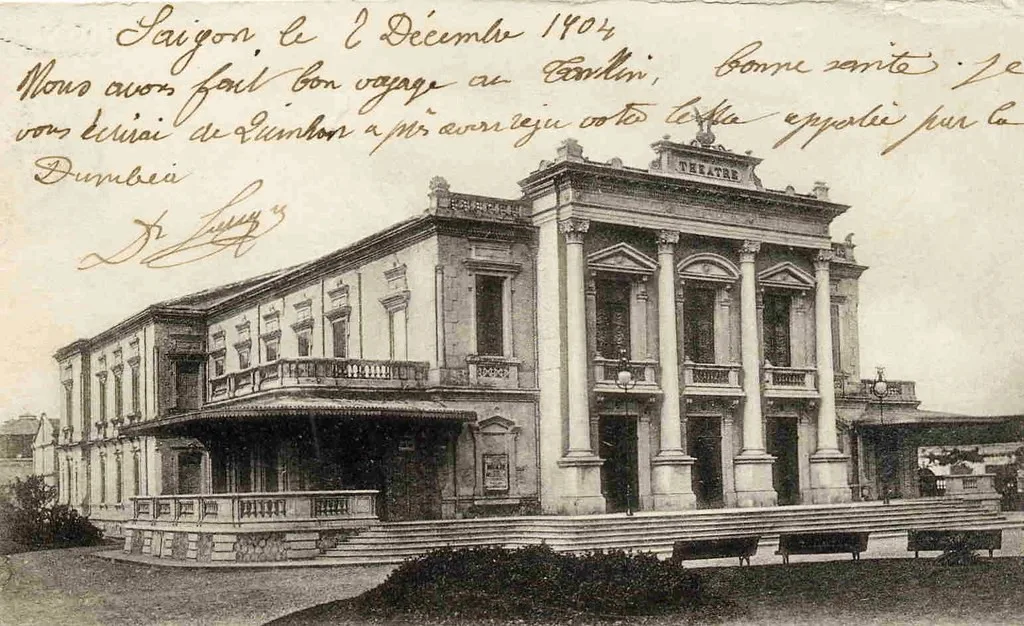 Saigon le 2 Décembre 1904
Nous avons fait bon voyage au bonne santé. Je
vous écrirai de Quinhon après avoir reçu votre lettre apportée par la
Dumbéa
Dr
THEATRE